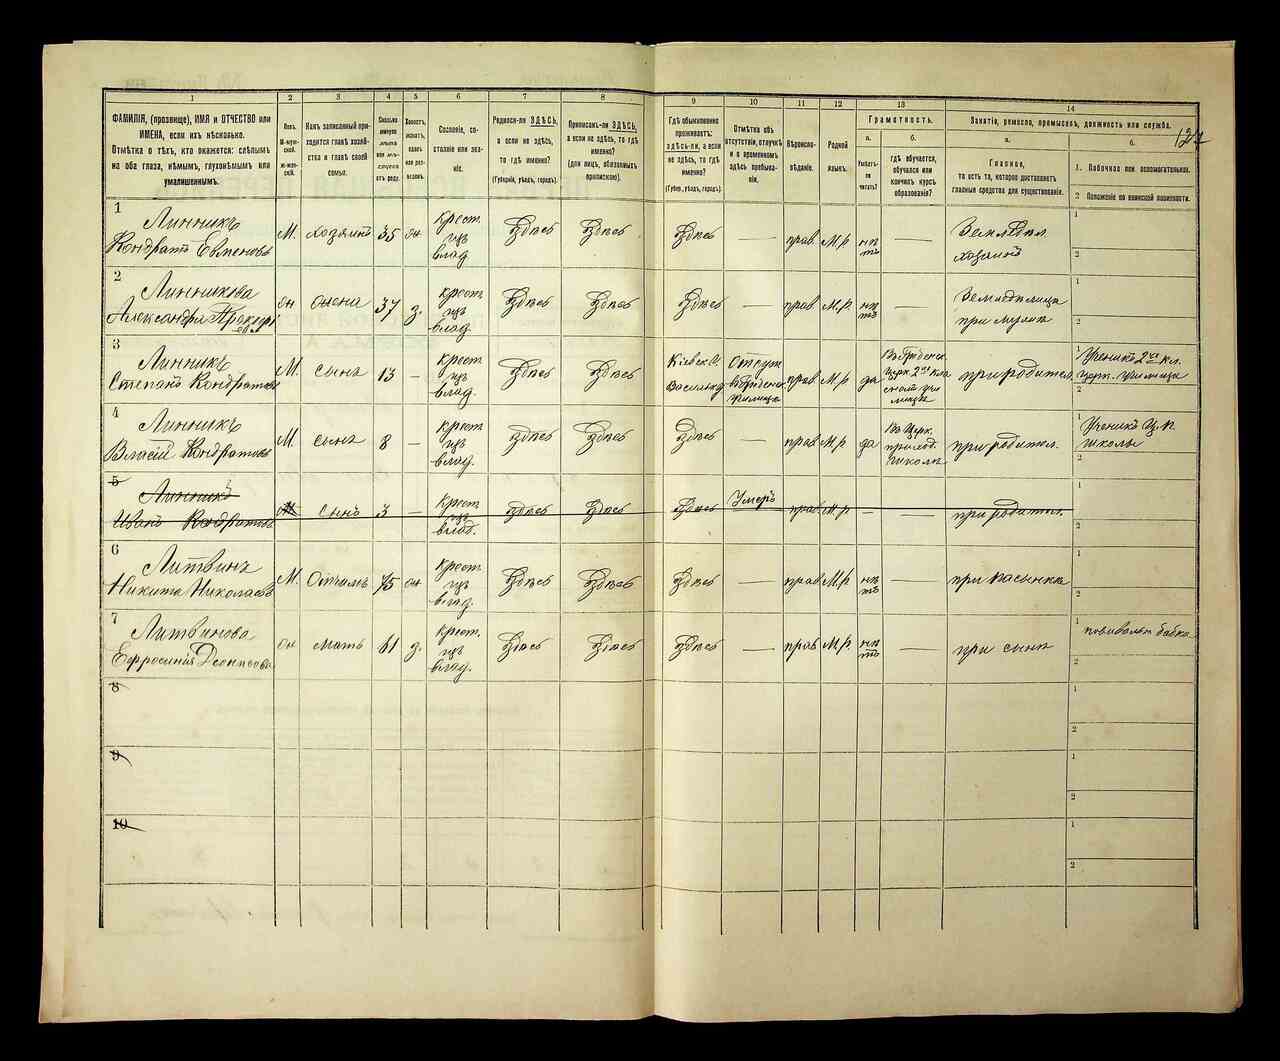 127
1
2
3
4
5
6
7
8
9
10
11
12
13
14
ФАМИЛІЯ, (прозвище), ИМЯ и ОТЧЕСТВО или
ИМЕНА, если ихъ нѣсколько.
Отмѣтка о тѣхъ, кто окажется: слѣпымъ
на оба глаза, нѣмымъ, глухонѣмымъ или
умалишеннымъ.
Полъ.
М-мужской.
Ж-женскій.
Какъ записанный приходится
главѣ хозяйства
и главѣ своей
семьи.
Сколько
минуло
лѣтъ
или мѣсяцевъ
отъ роду.
Холостъ,
женатъ,
вдовъ
или разведенъ.
Сословіе, состояніе
или званіе.
Родился-ли ЗДѢСЬ,
а если не здѣсь,
то гдѣ именно?
(Губернія, уѣздъ, городъ).
Приписанъ-ли ЗДѢСЬ,
а если не здѣсь, то
гдѣ именно?
(для лицъ, обязанныхъ
припискою).
Гдѣ обыкновенно
проживаетъ:
здѣсь-ли, а если
не здѣсь, то гдѣ
именно?
(Губер., уѣздъ, городъ).
Отмѣтка объ
отсутствіи, отлучкѣ
и о временномъ
здѣсь пребываніи.
Вѣроисповѣданіе.
Родной
языкъ.
Грамотность.
а.
Умѣетъ-ли
читать?
б.
гдѣ обучается,
обучался или
кончилъ курсъ
образованія?
Занятіе, ремесло, промыселъ, должность или служба.
а.
Главное,
то есть то, которое доставляетъ
главныя средства для существованія.
б.
1. Побочное или вспомогательное.
2 Положеніе по воинской повинности.
1
Линникъ
Кондратъ Евменовъ
М. хозяинъ 35
Крест.
влад.
Здѣсь Здѣсь Здѣсь — прав. М.р. нѣтъ —
Земледѣл.
хозяинъ
1
2
2
Линникова
Александра
жена 37
Крест.
влад.
Здѣсь Здѣсь Здѣсь — прав. М.р. нѣтъ
Земледѣлица
при мужѣ
1
2
3
Линникъ
Степанъ Кондратовъ
М. сынъ 13 —
Крест.
влад.
Здѣсь Здѣсь
Кіевск.
Васильк.
училище
прав. М.р. да
церк. 2хъ кла
училище
при родител.
1
Ученикъ 2хъ кл.
церк. училища
2
4
Линникъ
Власій Кондратовъ
М. сынъ 8 —
Крест.
влад.
Здѣсь Здѣсь Здѣсь — прав. М.р. да
Въ Церк.
приход.
школѣ
при родител.
1
Ученикъ Ц.П.
школы
2
5
Линникъ
Иванъ Кондратовъ
М сынъ 3 —
Крест.
влад.
Здѣсь Здѣсь Здѣсь Умеръ прав. М.р. — — при родител.
1
2
6
Литвинъ
Никита Николаевъ
М. Отчимъ 75
Крест.
влад.
Здѣсь Здѣсь Здѣсь — прав. М.р. нѣтъ — при пасынкѣ
1
2
7
Литвинова
Ефросинія Денисова
мать 61
Крест.
влад.
Здѣсь Здѣсь Здѣсь — прав. М.р. нѣтъ — при сынѣ
1
повивальн. бабка
2
8
1
2
9
1
2
10
1
2